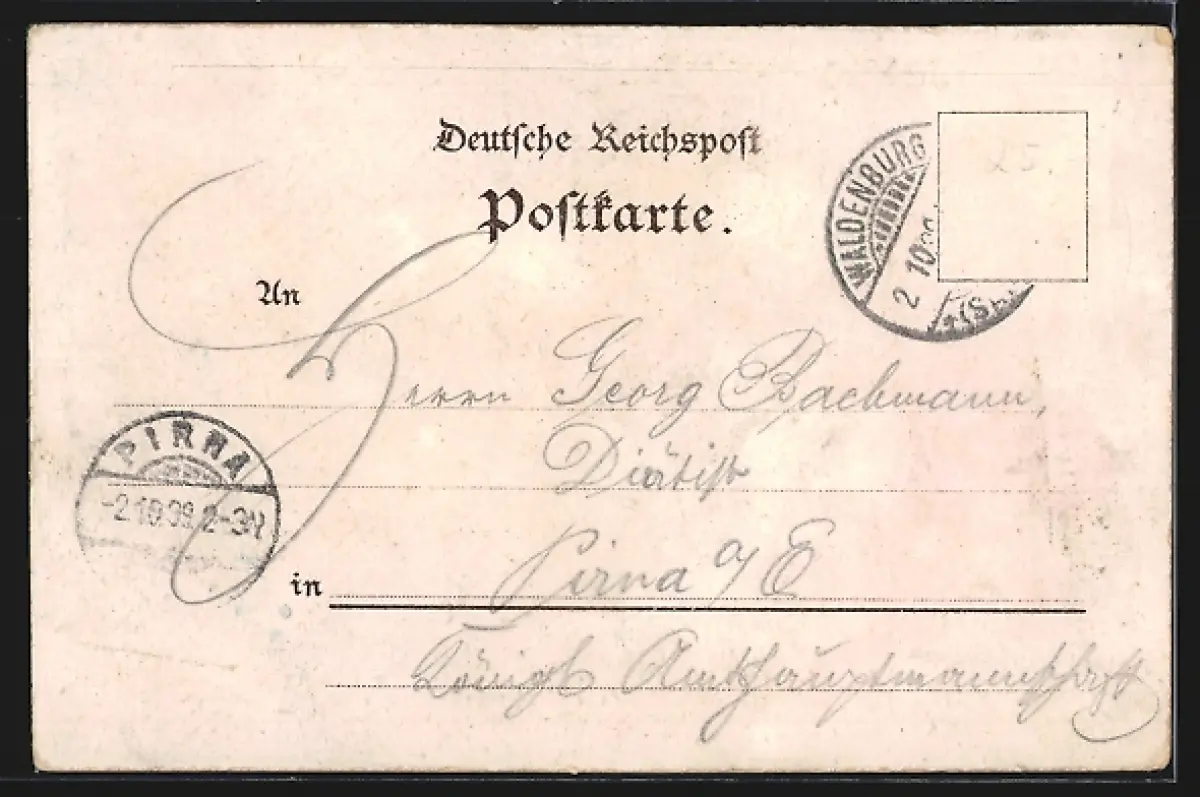 Deutsche Reichspost
Postkarte.
WALDENBURG
2 10 99
25
An
Herrn Georg Bachmann,
Diätist
PIRNA
-2.10.99. 2-3N
in Pirna a/E
Königl Amtshauptmannschaft